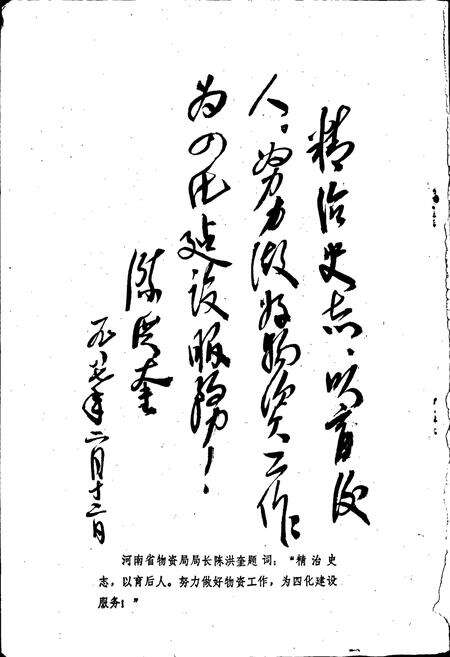 精治史志，以育后
人。努力做好物资工作
为四化建设服务！
陈洪奎
二月十二日
河南省物资局局长陈洪奎题词：“精治史
志，以育后人。努力做好物资工作，为四化建设
服务！”